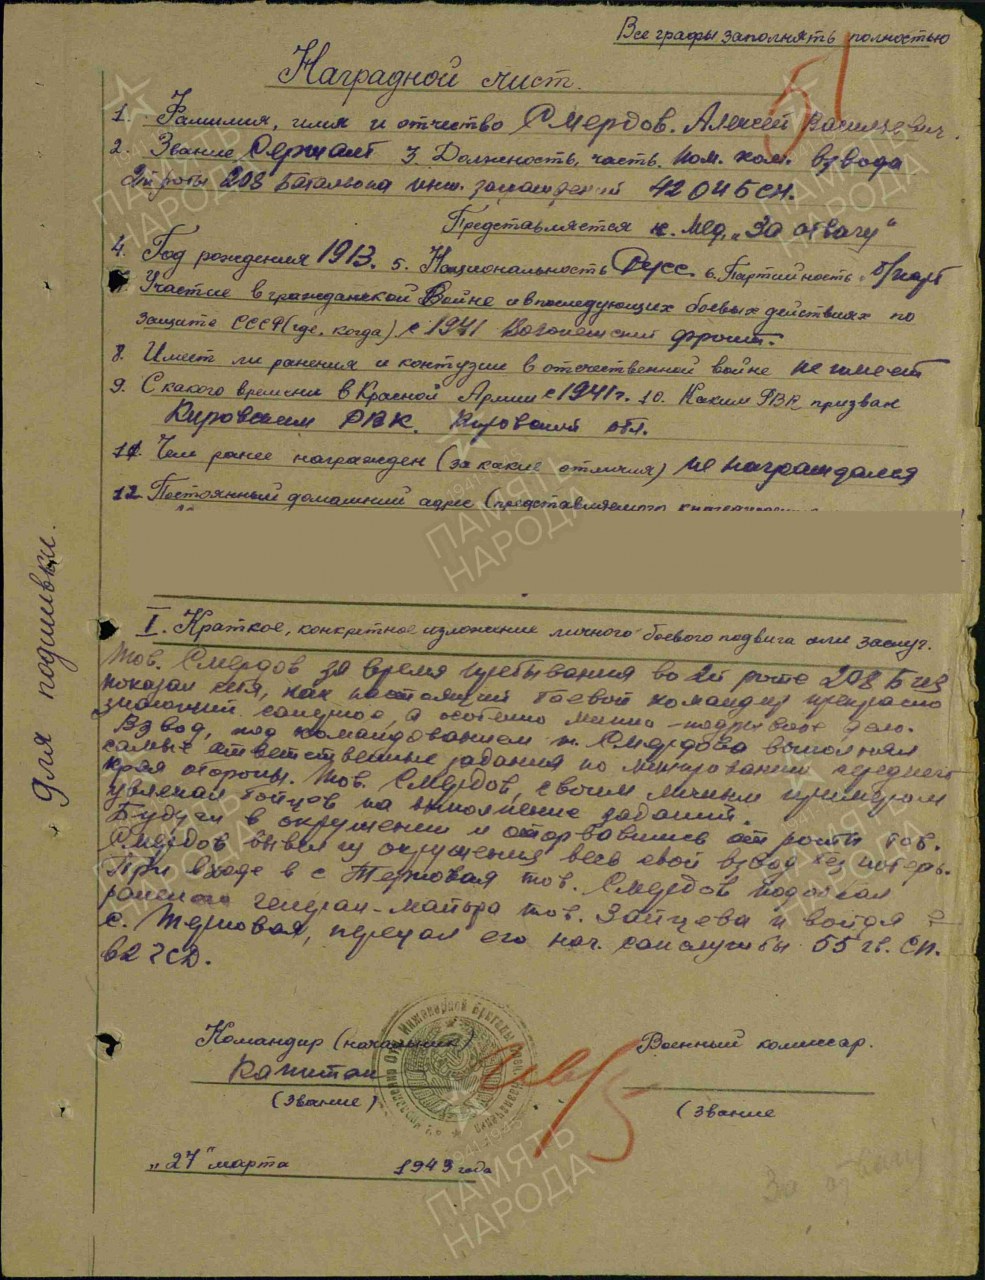 Все графы заполнять полностью
51
Наградной лист.
1. Фамилия, имя и отчество Смердов Алексей Васильевич.
2. Звание Сержант 3. Должность, часть. Пом. ком. взвода
2й роты 208 Батальона инж. заграждений 42 ОИБСН.
Представляется к мед. „За отвагу"
4. Год рождения 1913. 5. Национальность Русс 6. Партийность б/парт
7. Участие в гражданской Войне и в последующих боевых действиях по
защите СССР (где, когда) с 1941 Воронежский фронт.
8. Имеет ли ранения и контузии в отечественной войне не имеет
9. С какого времени в Красной Армии с 1941г. 10. Каким РВК призван
Кировским РВК. Кировский обл.
11. Чем ранее награжден (за какие отличия) не награждался
12. Постоянный домашний адрес (представляемого к награждению
I. Краткое, конкретное изложение личного боевого подвига или заслуг.
Тов. Смердов за время пребывания во 2й роте 208 Биз
показал себя, как настоящий боевой командир прекрасно
знающий саперное, а особенно минно-подрывное дело.
Взвод, под командованием т. Смердова выполнял
самые ответственные задания по минированию переднего
края обороны. Тов. Смердов, своим личным примером
увлекал бойцов на выполнение заданий.
Будучи в окружении и оторвавшись от роты тов.
Смердов вывел из окружения весь свой взвод без потерь.
При входе в с Терновая тов. Смердов подобрал
раненого генерал-майора тов. Зайцева и войдя в
с. Терновая, передал его нач. санслужбы 55 гв. СП.
Для подшивки.
Командир (начальник)
Военный комиссар.
Капитан
(Звание)
(Звание
„27" марта 1943 года
За отвагу
Инженерной бригады
ПАМЯТЬ
НАРОДА
1941-1945